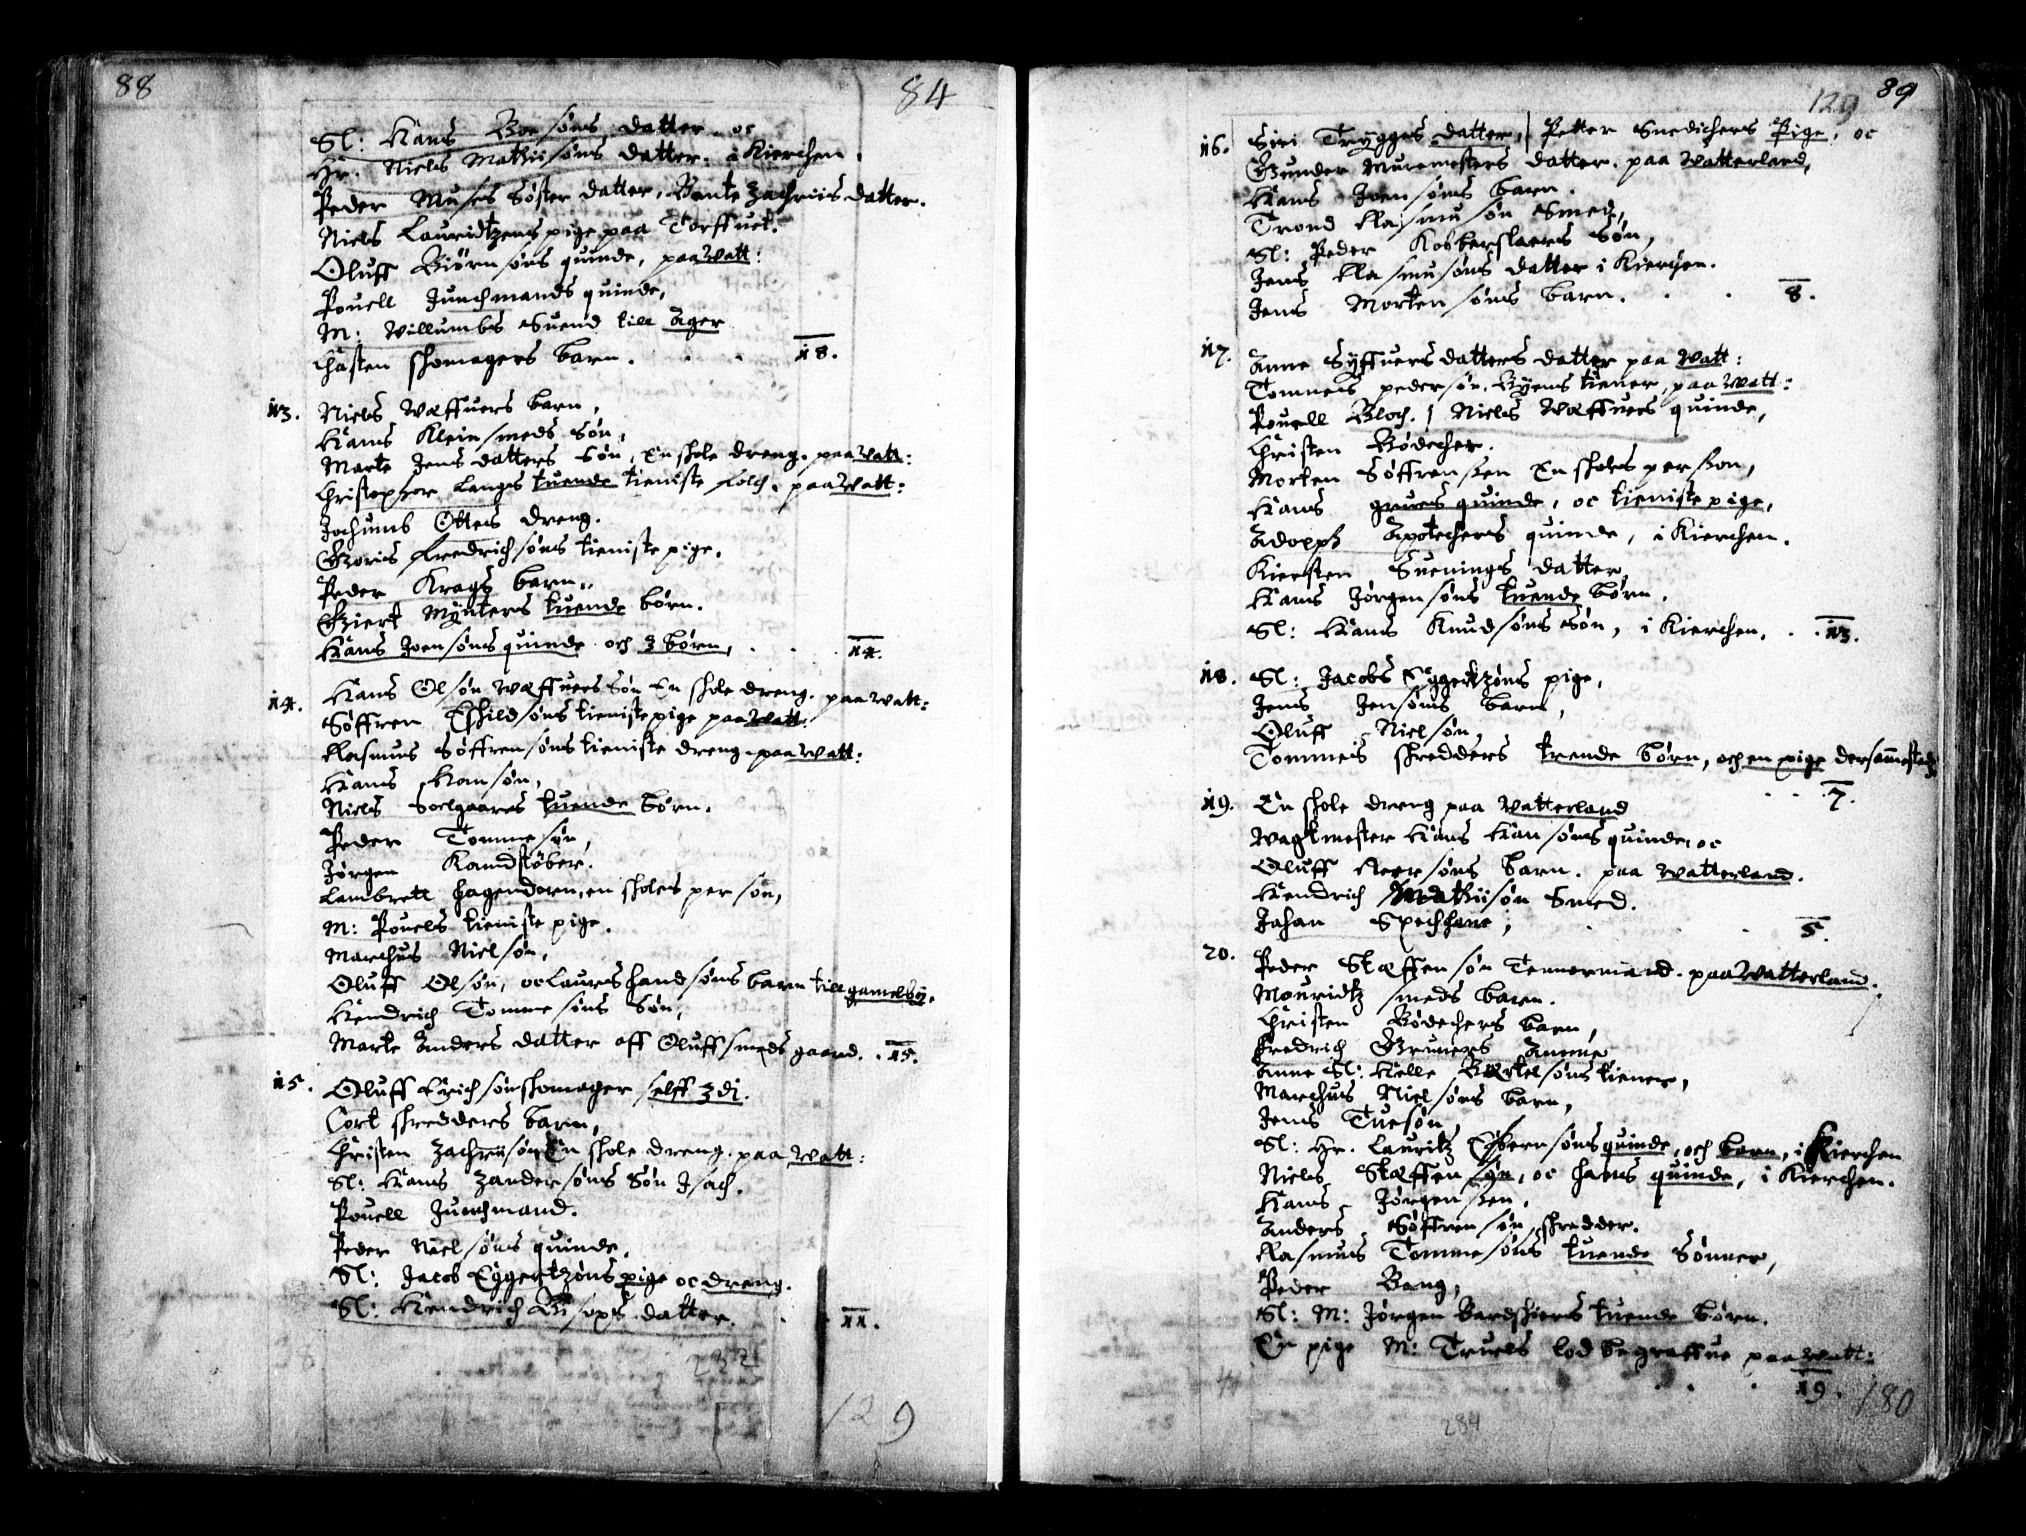 88
84
Sl: Hans Boesøns datter oc
Hr. Niels Mathiisøns datter. i Kierchen.
Peder Muses Søster datter, Bente Zachriis datter.
Niels Lauridtzens pige paa Torffuet.
Oluff Biørnsøns quinde, paa Watt:
Pouell Junchmands quinde,
M: Willumbs Suend till Ager
Chasten skomagers barn. . . 18.
13. Niels Wæffuers barn,
Hans Kleinsmeds Søn,
Marte Jens datters Søn, En skole dreng. paa Watt:
Christopher Langes tuende tieniste folch. paa Watt:
Jochumb Ottes dreng.
Gories Fredrichsøns tieniste pige.
Peder Krags barn.
Giert Mynters tuende børn.
Hans Joensøns quinde och 3 børn, . . . 14.
14. Hans Olsøn Wæffuers Søn En skole dreng. paa Watt:
Søffren Eskildsøns tieniste pige paa Watt:
Rasmus Søffrensøns tieniste dreng paa Watt:
Hans Hansøn,
Niels Soelgaards tuende børn.
Peder Tommesøn,
Jørgen Kandstøber.
Lambrett Hagendorn, en skoles person,
M: Pouels tieniste pige.
Marchus Nielsøn,
Oluff Olsøn, oc Laures Handsøns barn till gamelby.
Hendrich Tommesøns Søn,
Marte Anders datter aff Oluff smeds gaard. . 15.
15. Oluff Erichsøn skomager selff 3di.
Cort skredders barn,
Christen Zachriisøn En skole dreng. paa Watt:
Sl: Hans Zandersøns Søn Isach.
Pouell Junchmand.
Peder Nielsøns quinde,
Sl: Jacob Eggertzøns pige oc dreng.
Sl: Hendrich Bisops datter. . . 11.
232
129
89
129
16. Siri Trygges datter, / Petter Snedichers Pige, oc
Gunder Muremesters datter. paa Watterland,
Hans Joensøns barn.
Trond Rasmusøn Smed,
Sl: Peder Kobberslaers Søn,
Jens Rasmusøns datter i Kierchen.
Jens Mortensøns barn. . . 8.
17. Anne Syffuers datters datter paa Watt:
Tommes pedersøn, Byens tiener, paa Watt:
Pouell Bloch. / Niels Wæffuers quinde,
Christen Bødecher.
Morten Søffrenssen En skoles persson,
Hans grues quinde, oc tieniste pige,
Adolph Apotechers quinde, i Kierchen.
Kiersten Suenings datter
Hans Jørgensøns tuende børn.
Sl: Hans Knudsøns Søn, i Kierchen. . . 13.
18. Sl: Jacobs Eggertzøns pige,
Jens Jensøns barn,
Oluff Nielsøn,
Tommes skredders trende børn, och en pige dersammested
. . 7.
19. En skole dreng paa Watterland
Wagtmester Hans Hansøns quinde, oc
Oluff Roersøns barn. paa Watterland.
Hendrich Mathiisøn Smed.
Johan Spechhane, . . 5.
20. Peder Stæffensøn Temmermand. paa Watterland.
Mouridtz smeds barn.
Christen Bødechers barn,
Fredrich Gruners Amme
Anne Sl: Helle Bertelsøns tiener,
Marchus Nielsøns barn,
Jens Tuesøn
Sl: Hr. Lauritz Esbernsøns quinde, och barn, i Kierchen
Niels Stæffensøn, oc hans quinde, i Kierchen.
Hans Jørgenssen,
Anders Søffrensøn skredder.
Rasmus Tommesøns tuende Sønner,
Peder Bang,
Sl: M: Jørgen Bardskiers tuende børn.
En pige M: Truels lod begraffue paa Watt:
. . . 19.
180
284